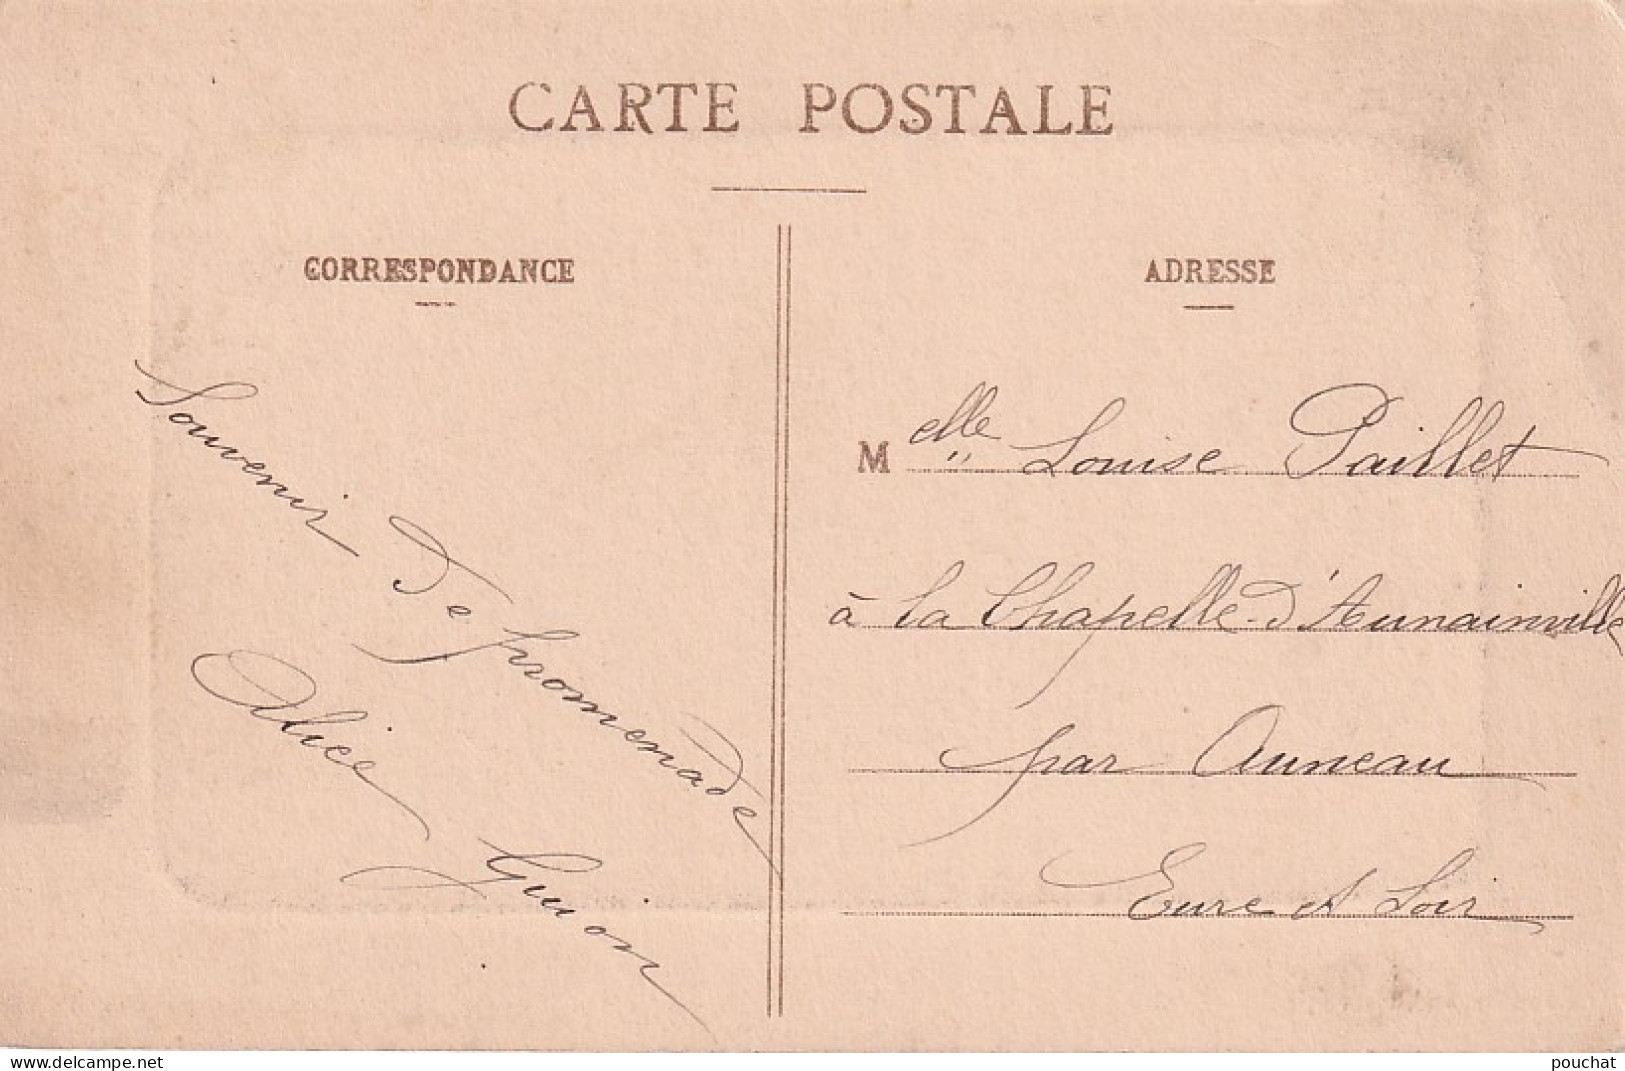 CARTE POSTALE
CORRESPONDANCE
Souvenir de promenade
Alice Guion
ADRESSE
Melle Louise Paillet
à la Chapelle-d'Aunainville
par Auneau
Eure et Loir
www.delcampe.net
pouchat